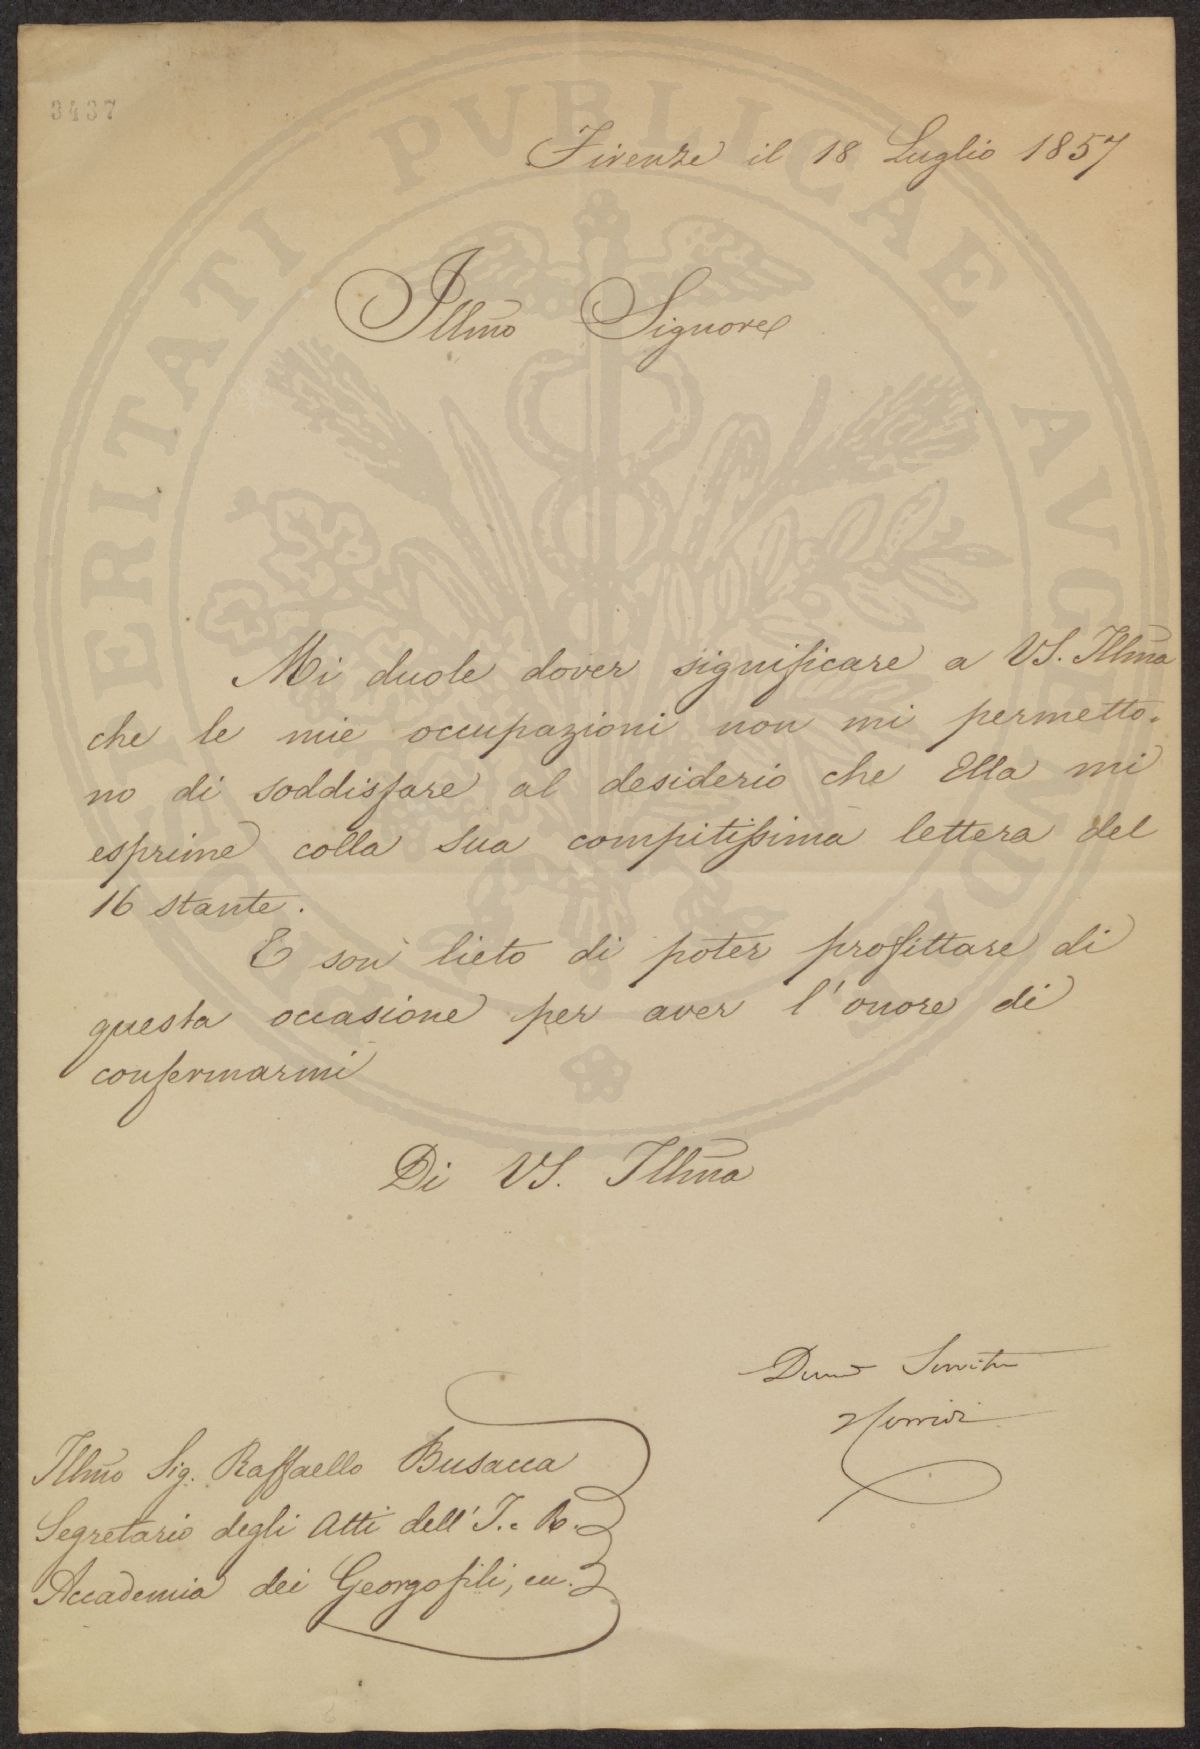 3437
Firenze il 18 Luglio 1857
Illm̃o Signore
Mi duole dover significare a VS. Illm̃a
che le mie occupazioni non mi permetto-
no di soddisfare al desiderio che Ella mi
esprime colla sua compitissima lettera del
16 stante.
E son lieto di poter profittare di
questa occasione per aver l'onore di
confermarmi
Di VS. Illm̃a
Servitore
Illm̃o Sig. Raffaello Busacca
Segretario degli Atti dell'I. e R.
Accademia dei Georgofili, ec.
PROSPERITATI PVBLICAE AVGENDAE